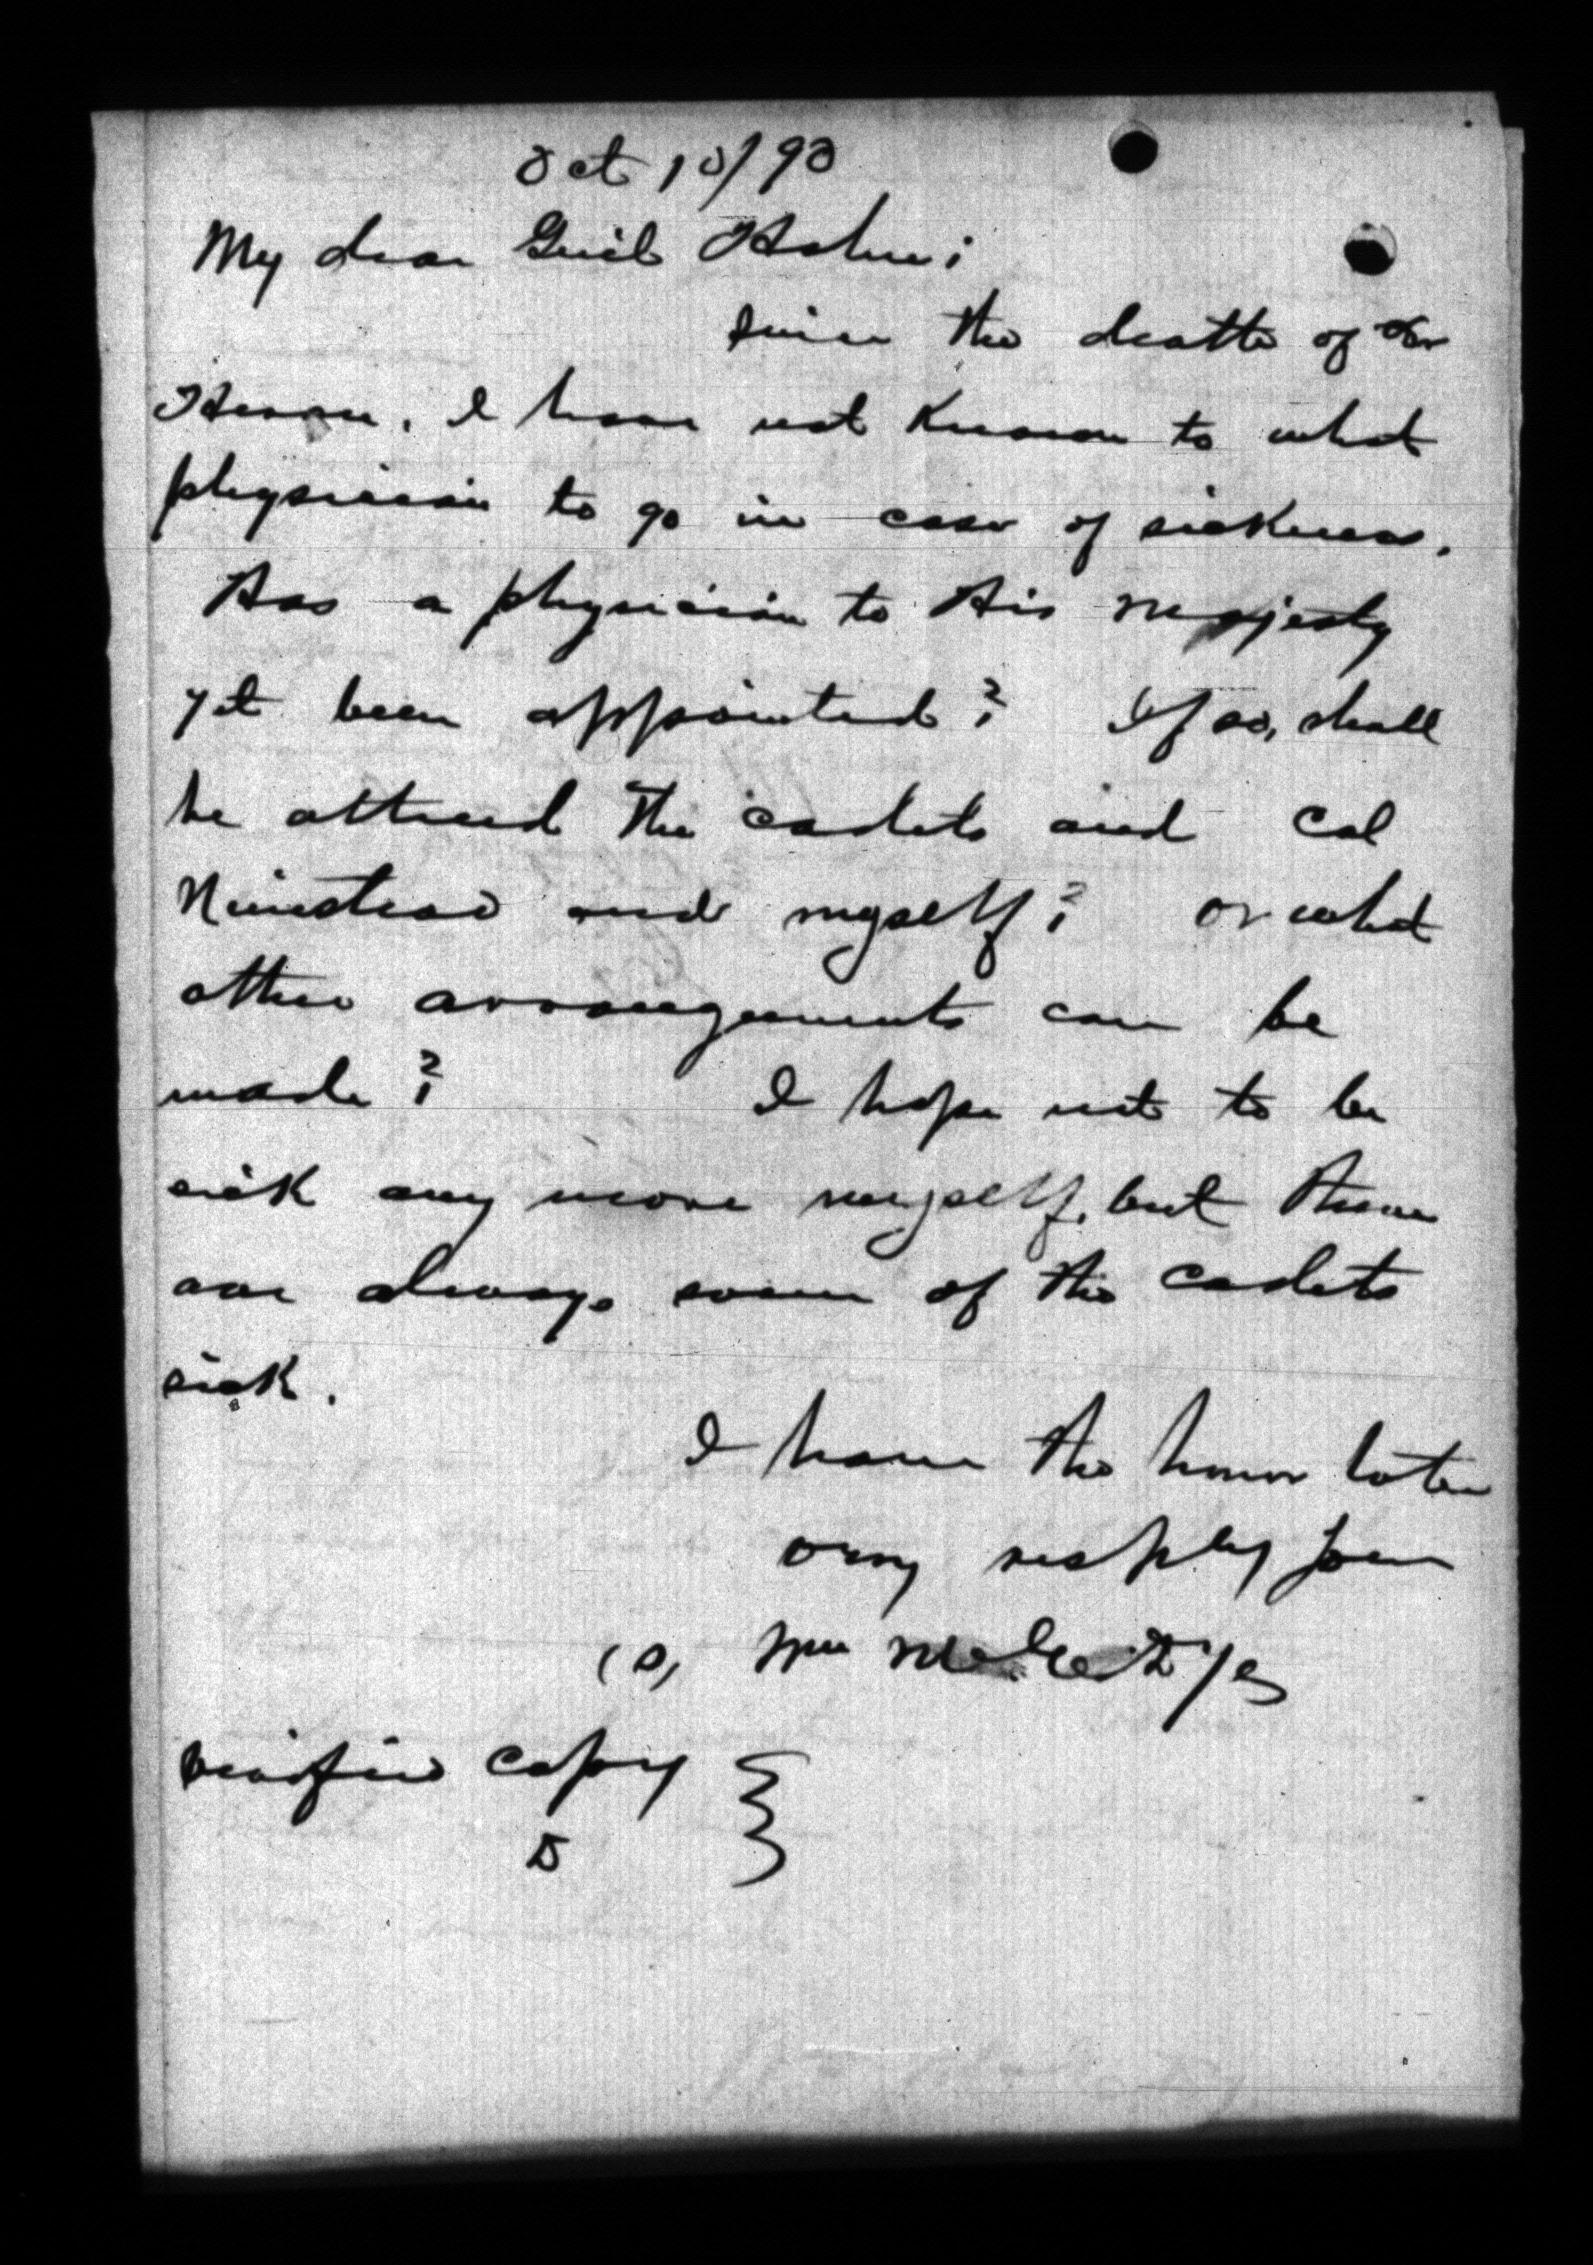 Oct 10/90
My dear Genl
since the death of Dr
Heron. I have not known to what
physician to go in case of sickness.
Has a physician to His Majesty
yet been appointed? If so, shall
he attend the cadets and Col
Nienstead and myself? or what
other arrangements can be
made? I hope not to be
sick any more myself, but there
are always some of the cadets
sick.
I have the honor to be
very respfly Your
(s, Wm
copy
D